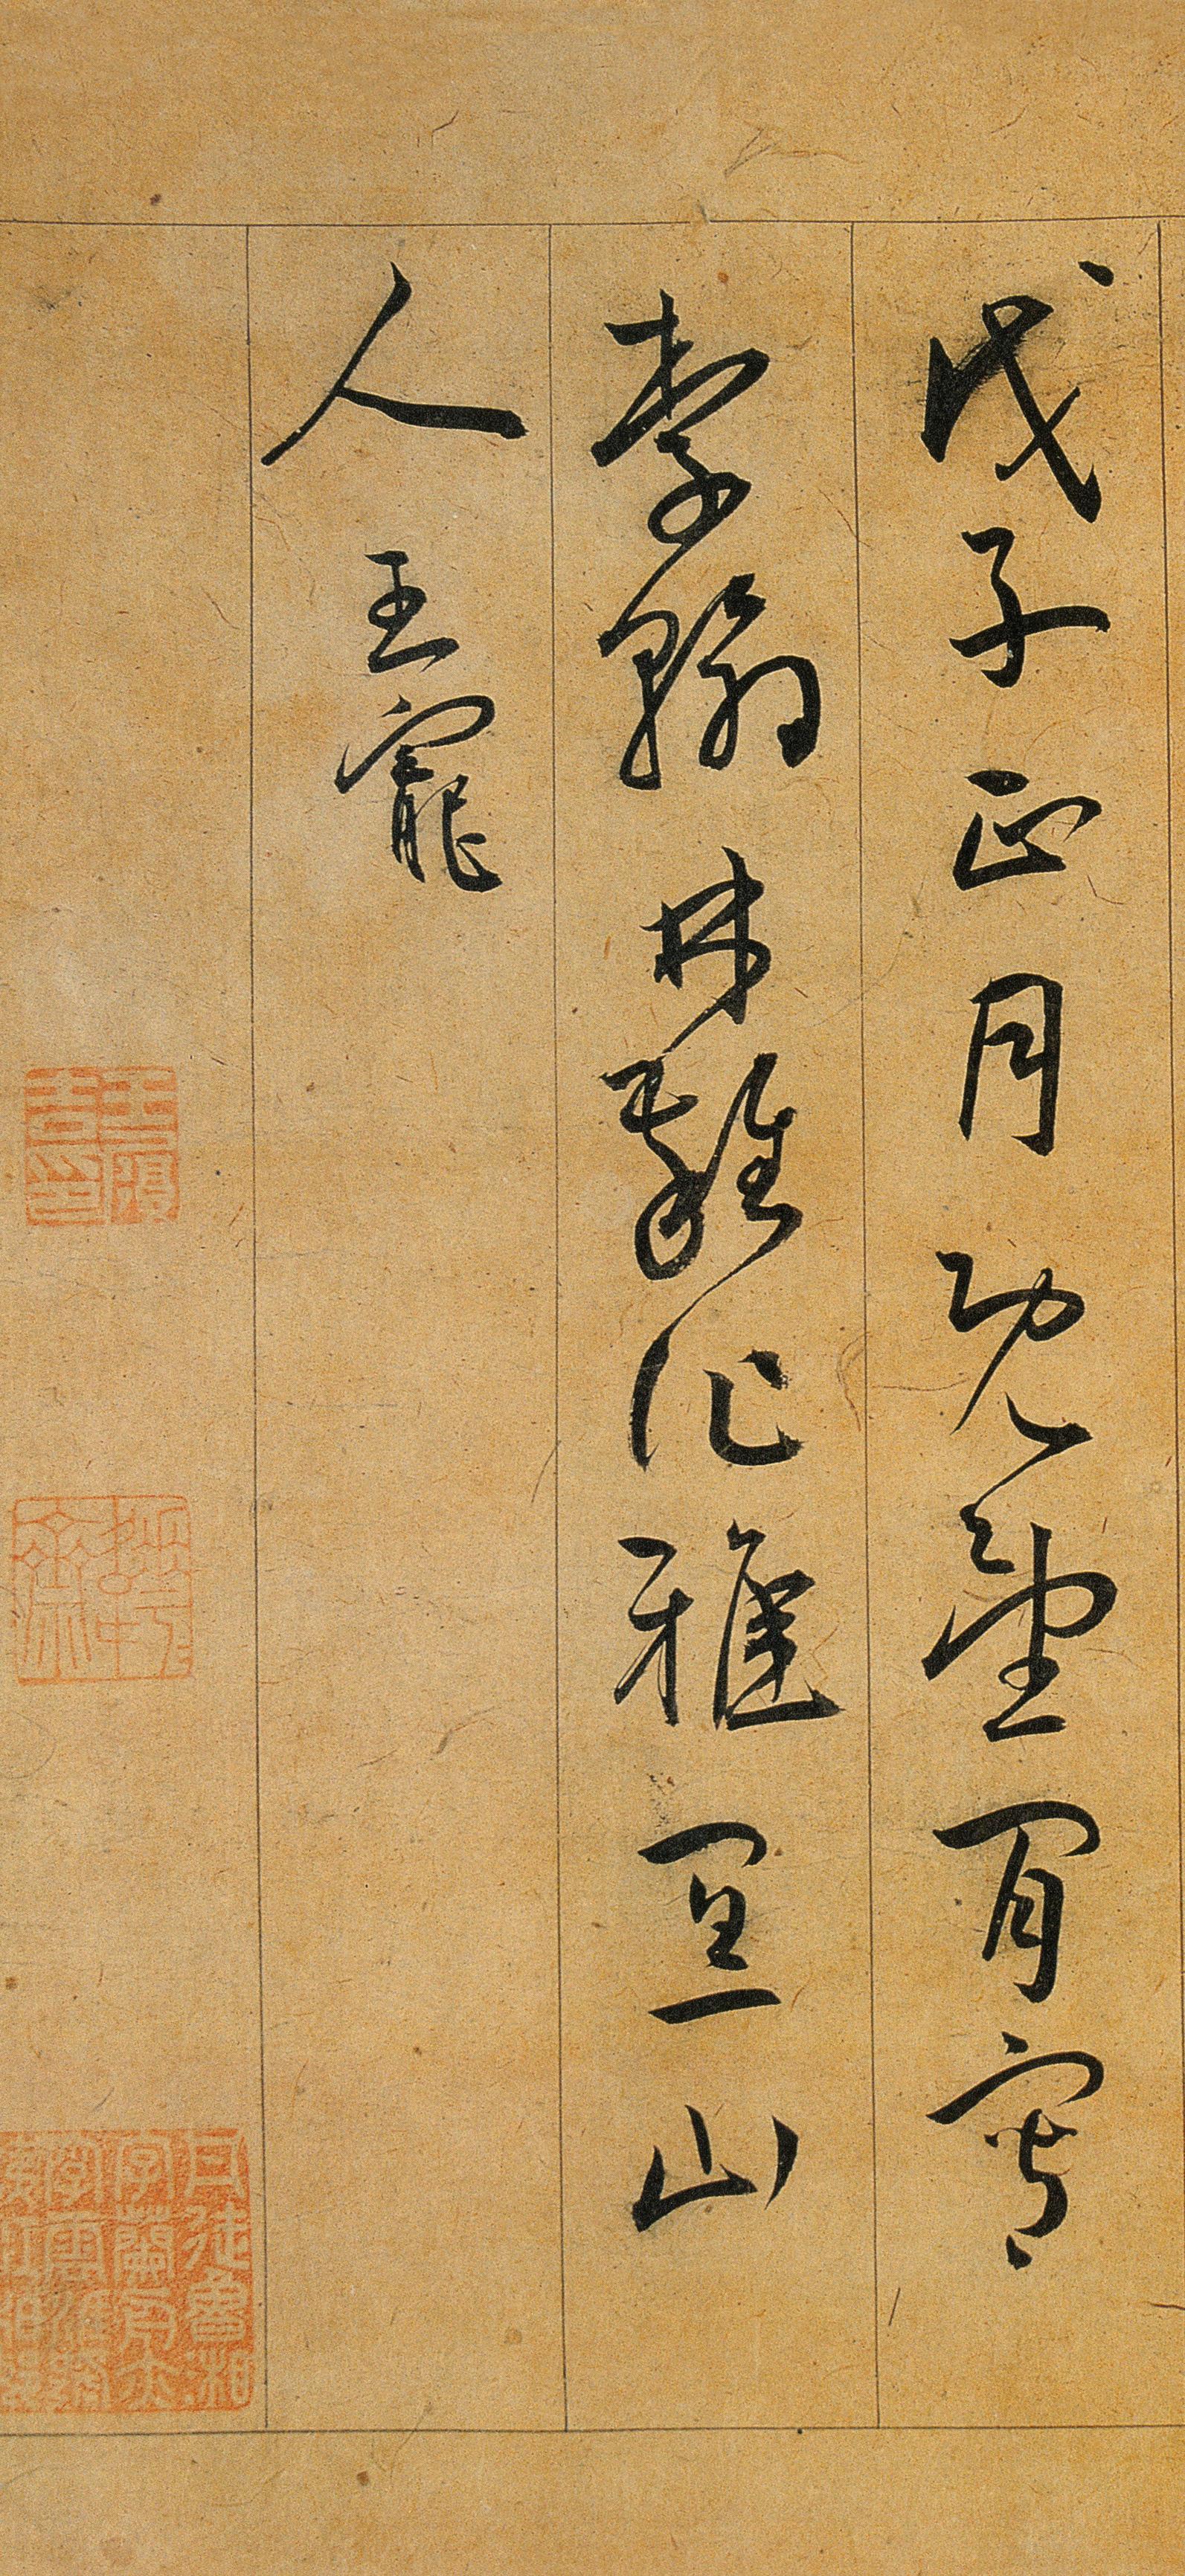 戊子正月既望閒寫
李翰林雜作雅宜山
人王寵
王履吉印